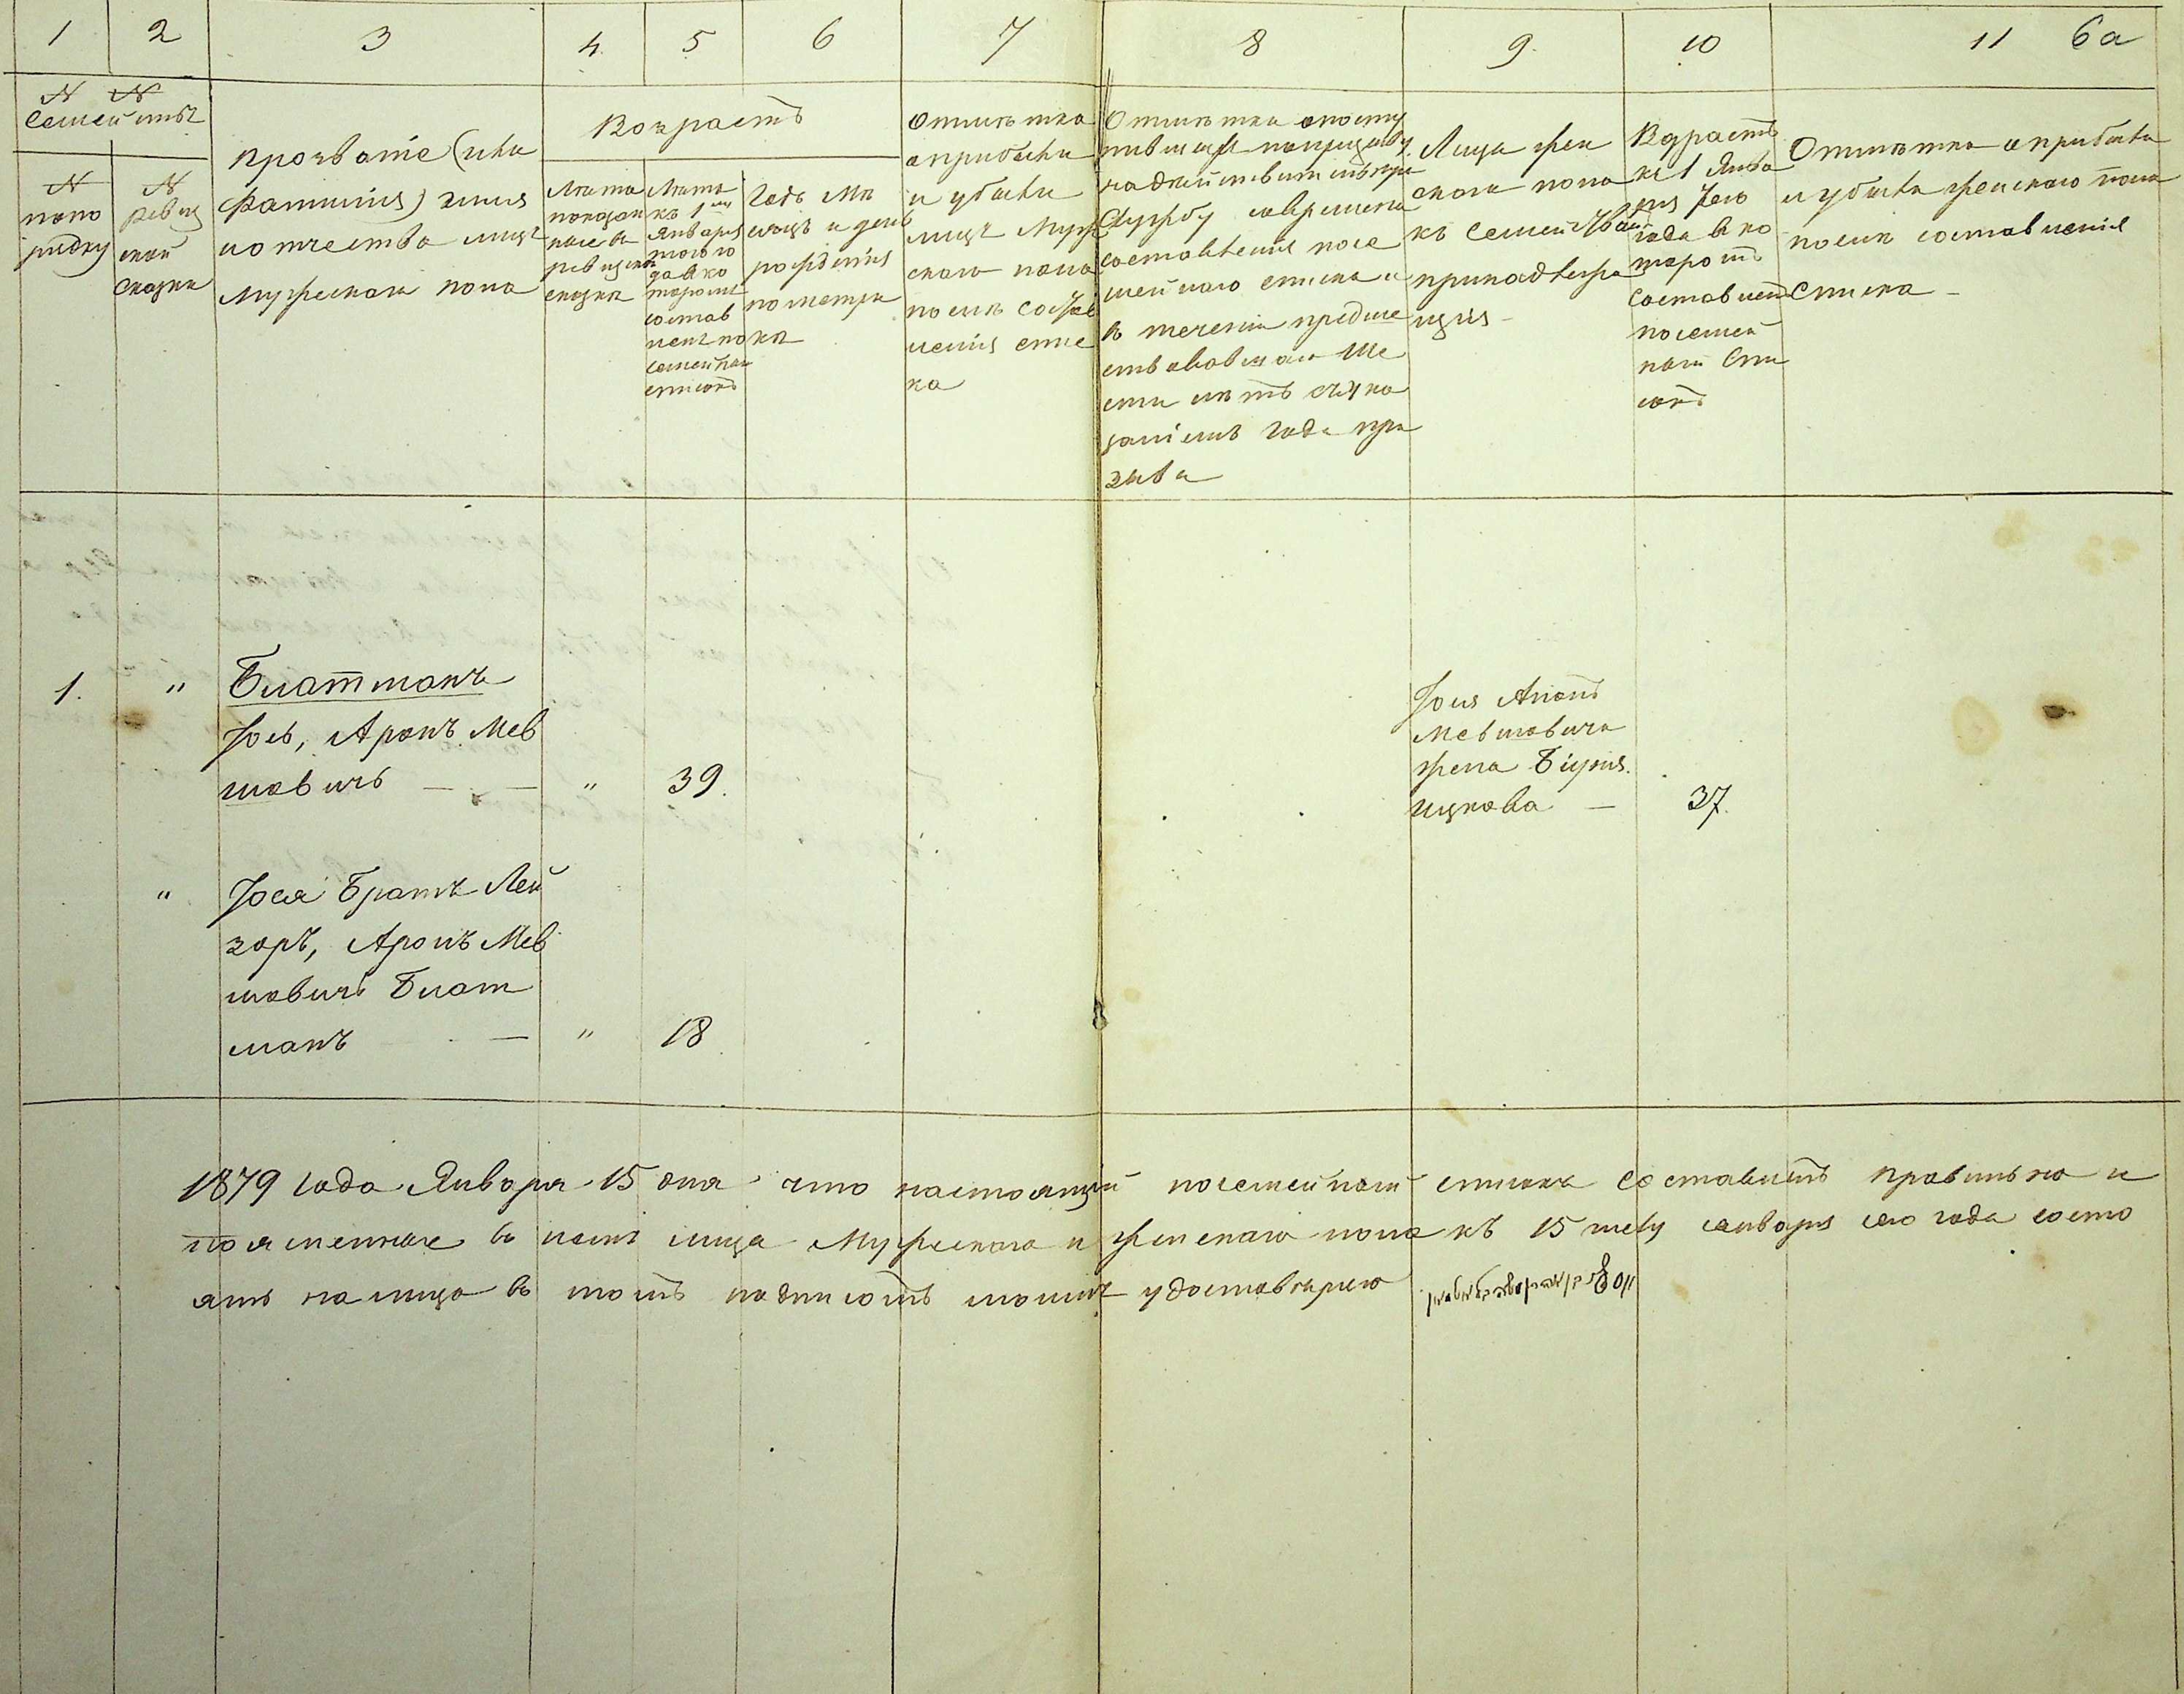 1 2 3 4. 5 6 7 8 9. 10 11 6а
N N
Семействъ
N
попо
рядку
N
ревиз
ской
сказки
Прозваніе (или
фамилія) имя
и отчество лицъ
Мужескаго пола
Возрастъ
Лѣта
показан
ные въ
ревизской
сказкѣ
Лѣта
къ 1му
Января
того го
да въ ко
торомъ
состав
ленъ по
семейный
списокъ
Годъ Мѣ
сяцъ и день
рожденія
по метри
кѣ
Отмѣтка
о прибыли
и убыли
лицъ Муже
скаго пола
послѣ состав
ленія спис
ка
Отмѣтка о посту
пившихъ по призыву
на дѣйствительную
Службу со времени
составленія посе
мейнаго списка и
въ теченіи предше
ствовавшихъ Ше
сти лѣтъ съ ука
заніемъ года при
зыва
Лица жен
скаго пола
къ Семейству
принадлежа
щія —
Возрастъ
къ 1 Янва
ря того
года въ ко
торомъ
составленъ
посемей
ный Спи
сокъ
Отмѣтка о прибыли
и убыли женскаго пола
послѣ составленія
Списка —
1. " Блатманъ
Іось, Аронъ Мев
шовичъ — — " 39.
Іося Аронъ
Мевшовича
жена
Ицкова — 37.
" Іося Братъ Лей
зоръ, Аронъ Мев
шовичъ Блат
манъ — " 18
1879 года Января 15 дня что настоящій посемейный списокъ составленъ правильно и
поясненные въ немъ лица Мужескаго и женскаго пола къ 15 числу января сего года состо
ятъ на лицо въ томъ подписомъ моимъ удостовѣряю